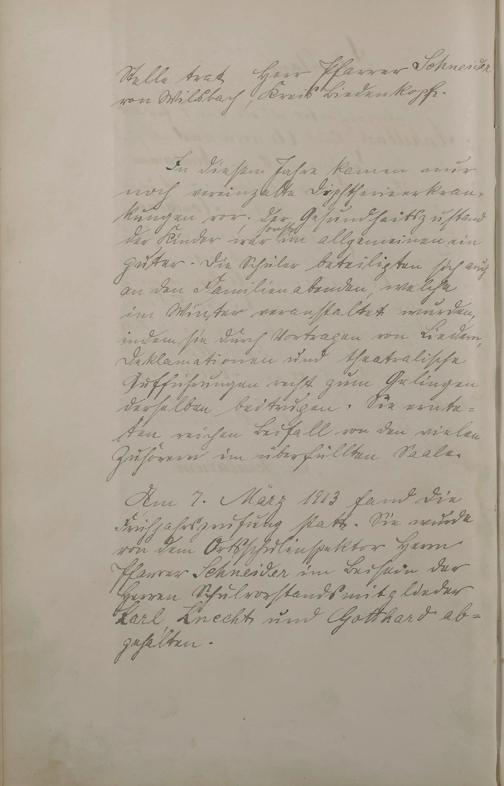 Stelle trat Herr Pfarrer Schneider
von Wilsbach, Kreis Biedenkopf.
In diesem Jahre kamen nur
noch vereinzelte Diphtherieerkran-
kungen vor. Der Gesundheitszustand
der Kinder war sonst im allgemeinen ein
guter. Die Schüler beteiligten sich auch
an den Familienabenden, welche
im Winter veranstaltet wurden,
indem sie durch Vortragen von Liedern,
Deklamationen und theatralische
Aufführungen recht zum Gelingen
derselben beitrugen. Sie ernte-
ten reichen Beifall von den vielen
Zuhörern im überfüllten Saale.
Am 7. März 1913 fand die
Frühjahrsprüfung statt. Sie wurde
von dem Ortsschulinspektor Herrn
Pfarrer Schneider im Beisein der
Herren Schulvorstandsmitglieder
Karl Knecht und Gotthard ab-
gehalten.